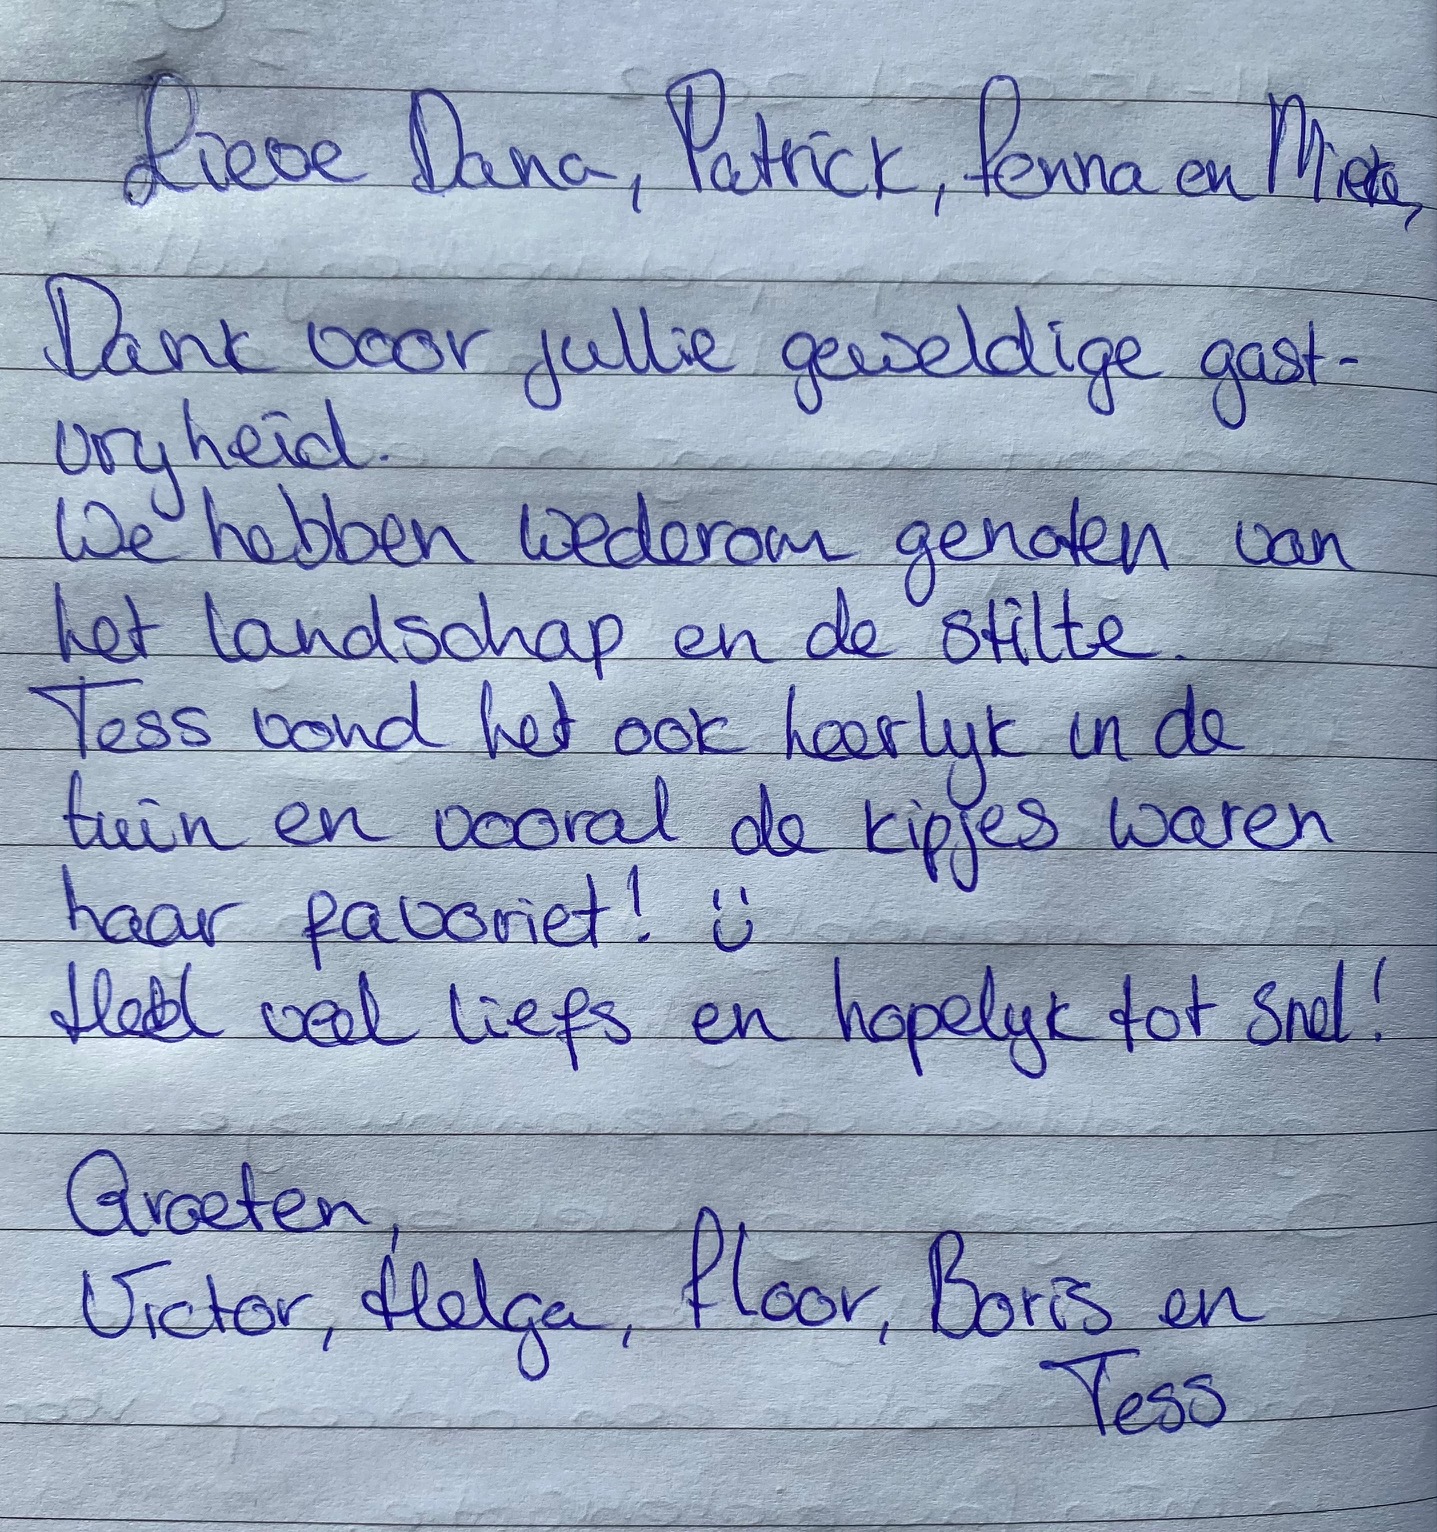 Lieve Dana, Patrick, Fenna en Mieke,
Dank voor jullie geweldige gast-
vrijheid.
We hebben wederom genoten van
het landschap en de stilte.
Tess vond het ook heerlijk in de
tuin en vooral de kipjes waren
haar favoriet! ü
Heel veel liefs en hopelijk tot snel!
Groeten,
Victor, Helga, Floor, Boris en
Tess